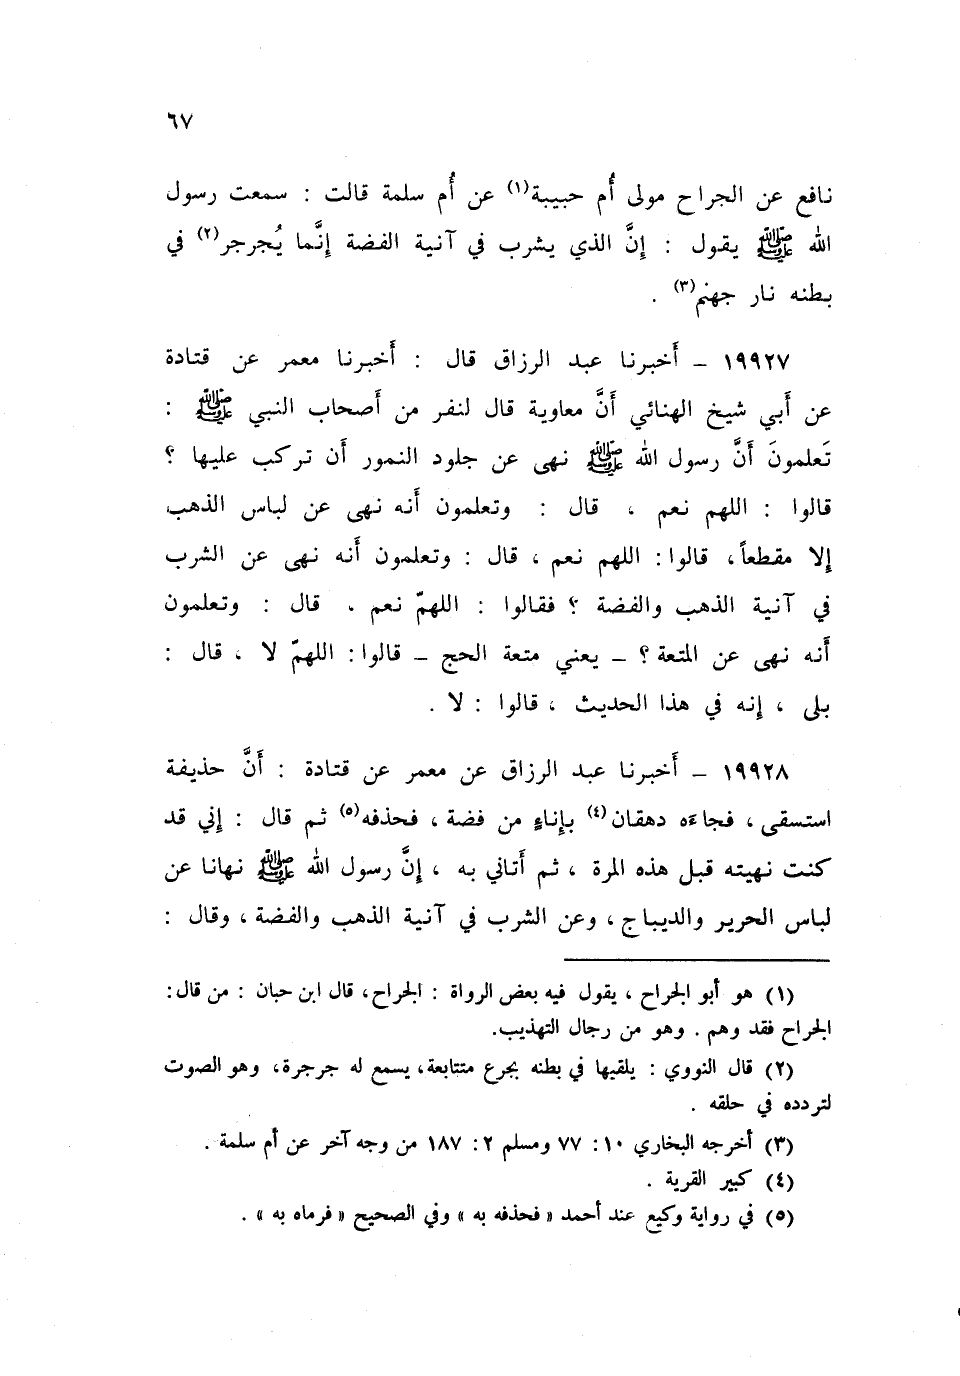 ٦٧
نافع عن الجراح مولى أُم حبيبة(١) عن أُم سلمة قالت : سمعت رسول
الله ﷺ يقول : إنَّ الذي يشرب في آنية الفضة إنَّما يُجرجر(٢) في
بطنه نار جهنم(٣) .
١٩٩٢٧ – أَخبرنا عبد الرزاق قال : أَخبرنا معمر عن قتادة
عن أَبي شيخ الهنائي أَنَّ معاوية قال لنفر من أَصحاب النبي ﷺ :
تَعلمونَ أَنَّ رسول الله ﷺ نهى عن جلود النمور أَن تركب عليها ؟
قالوا : اللهم نعم ، قال : وتعلمون أَنه نهى عن لباس الذهب
إلا مقطعاً، قالوا : اللهم نعم ، قال : وتعلمون أَنه نهى عن الشرب
في آنية الذهب والفضة ؟ فقالوا : اللهمّ نعم ، قال : وتعلمون
أَنه نهى عن المتعة ؟ – يعني متعة الحج – قالوا : اللهمّ لا ، قال :
بلى ، إنه في هذا الحديث ، قالوا : لا .
١٩٩٢٨ – أَخبرنا عبد الرزاق عن معمر عن قتادة : أَنَّ حذيفة
استسقى ، فجاءَه دهقان(٤) بإناءٍ من فضة ، فحذفه(٥) ثم قال : إني قد
كنت نهيته قبل هذه المرة ، ثم أَتاني به ، إنَّ رسول الله ﷺ نهانا عن
لباس الحرير والديباج ، وعن الشرب في آنية الذهب والفضة ، وقال :
(١) هو أبو الجراح ، يقول فيه بعض الرواة : الجراح، قال ابن حبان : من قال :
الجراح فقد وهم . وهو من رجال التهذيب.
(٢) قال النووي : يلقيها في بطنه بجرع متتابعة، يسمع له جرجرة، وهو الصوت
لتردده في حلقه .
(٣) أخرجه البخاري ١٠: ٧٧ ومسلم ٢: ١٨٧ من وجه آخر عن أم سلمة .
(٤) كبير القرية .
(٥) في رواية وكيع عند أحمد « فحذفه به » وفي الصحيح « فرماه به » .